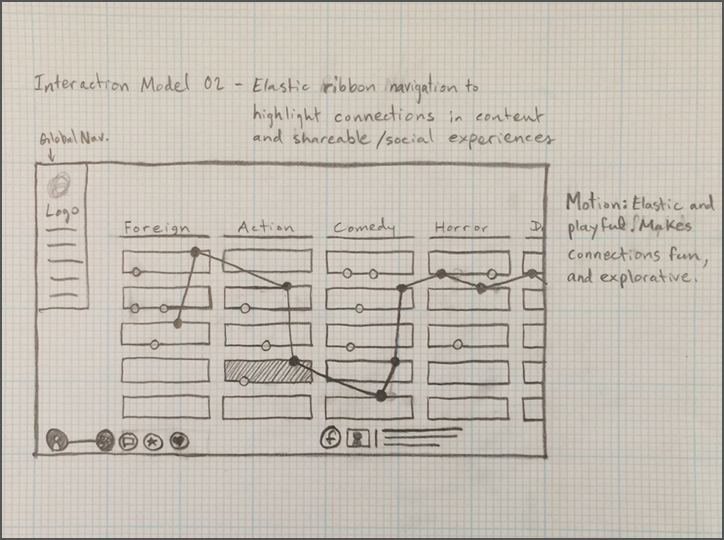 Interaction Model 02 - Elastic ribbon navigation to
highlight connections in content
and shareable/social experiences
Global Nav.
Logo
Foreign Action Comedy Horror D
Motion: Elastic and
playful. Makes
connections fun,
and explorative.
f